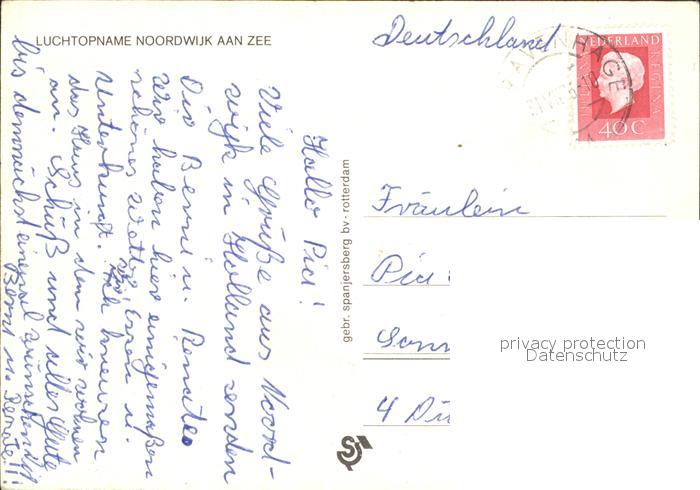 LUCHTOPNAME NOORDWIJK AAN ZEE
Hallo Pia!
Viele Grüße aus Noord-
wijk in Holland senden
Dir Bernd u. Renate
Wir haben hier einigermaßen
schönes Wetter, Essen u.
Unterkunft.
das Haus in dem wir wohnen
an. Tschüß und alles Gute
bis demnächst einmal wünschen Dir
Bernd u. Renate!!
gebr. spanjersberg bv - rotterdam
Deutschland
NEDERLAND
JULIANA REGINA
40C
Fräulein
Pia
Sonn
4 Dü
privacy protection
Datenschutz